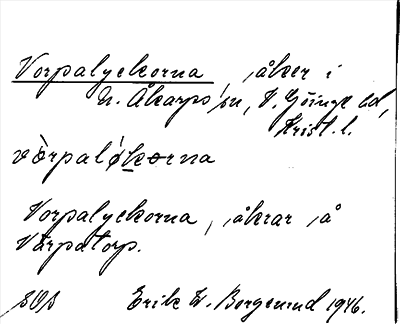 Vorpalyckorna, åker i
N. Åkarps sn, V. Göinge hd,
Krist. l.
vòrpaløkorna
Vorpalyckorna, åkrar å
Vårpatorp.
SOS Erik W. Borgemid 1946.